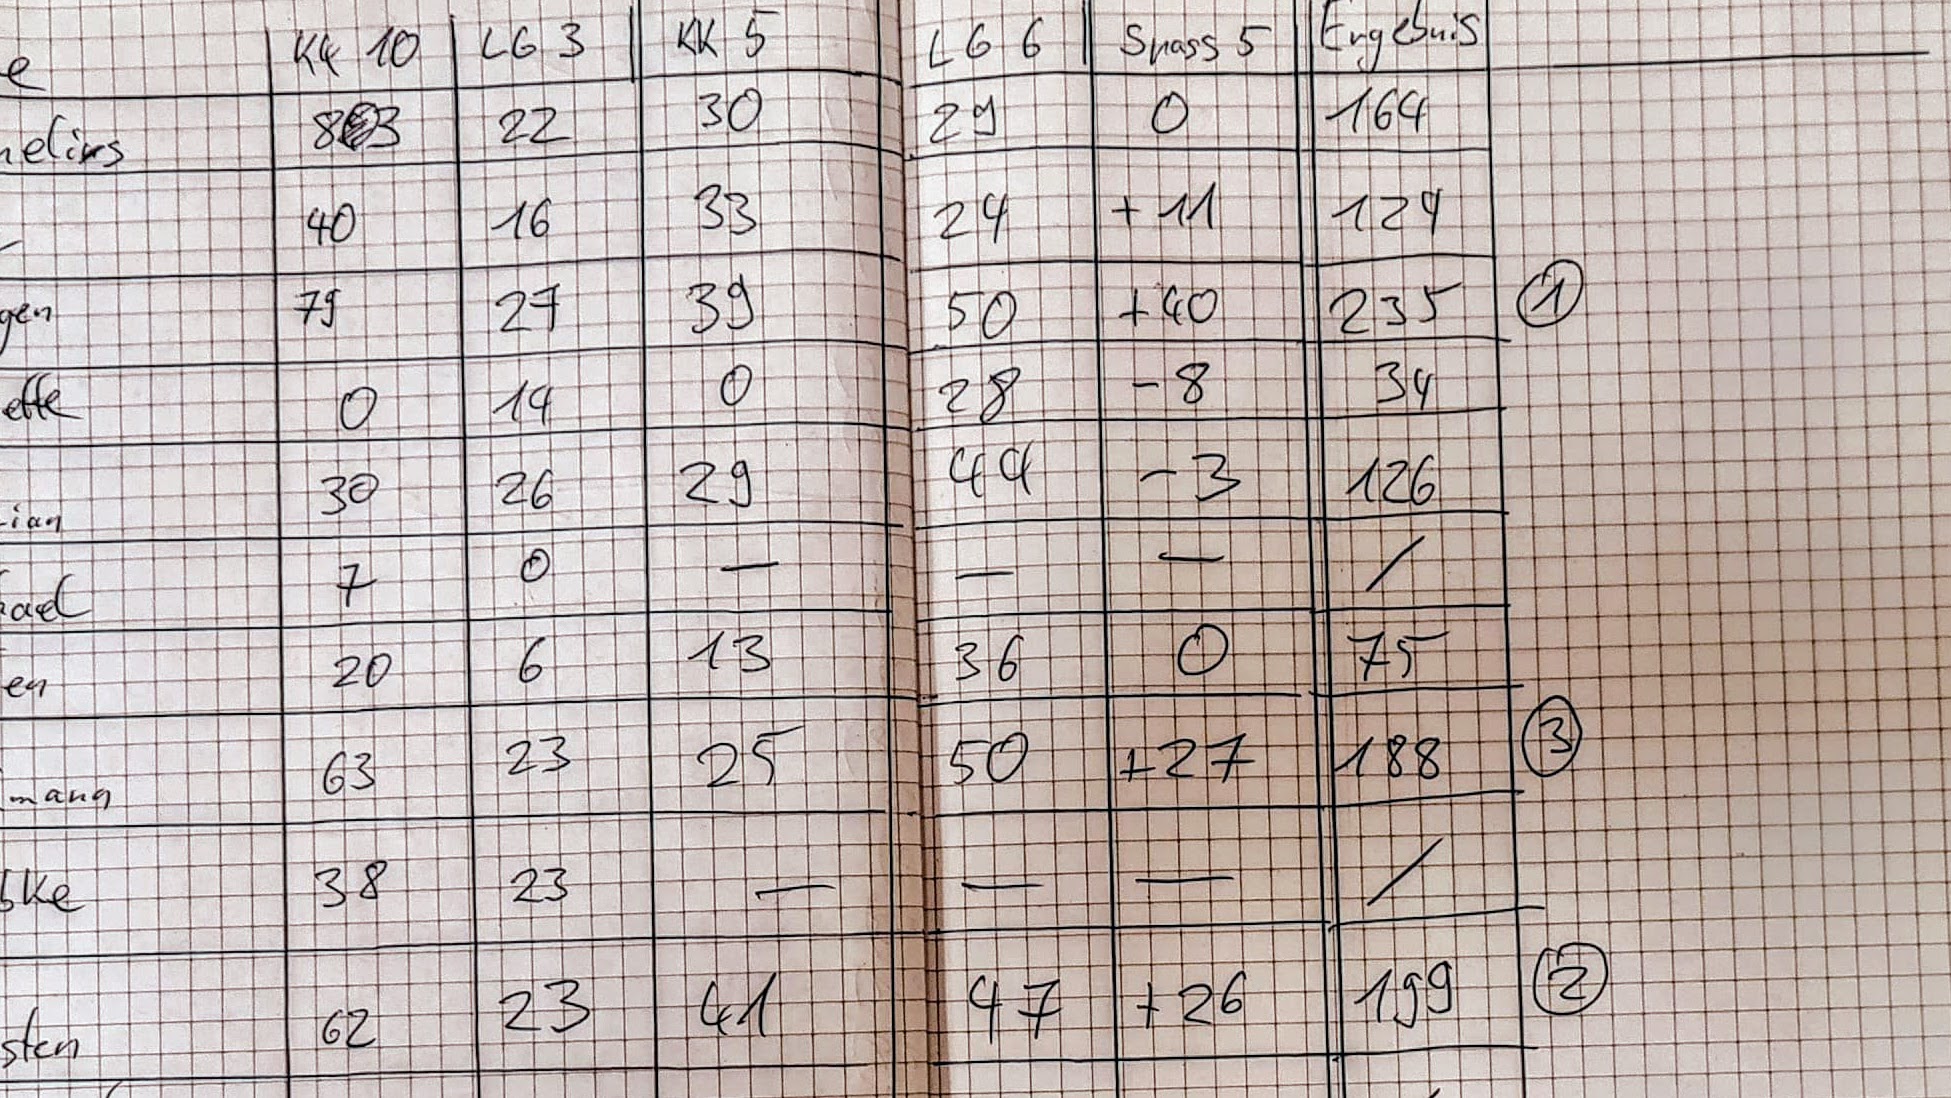 e KK 10 LG 3 KK 5 LG 6 Spass 5 Ergebnis
nelius 83 22 30 29 0 164
40 16 33 24 +11 124
gen 79 27 39 50 +40 235 1
ette 0 14 0 28 -8 34
ian 30 26 29 44 -3 126
ael 7 0 — — — /
en 20 6 13 36 0 75
mann 63 23 25 50 +27 188 3
ke 38 23 — — — /
sten 62 23 41 47 +26 199 2